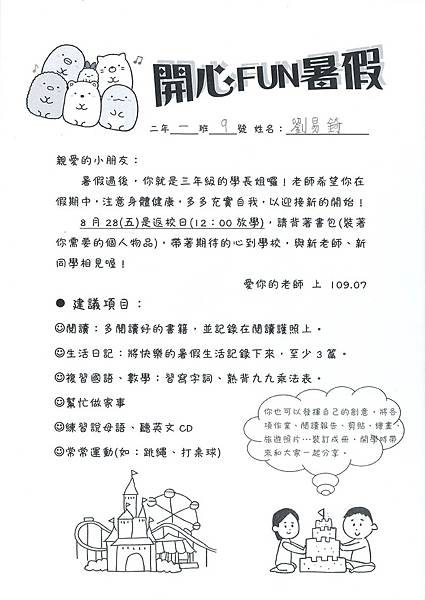 開心FUN暑假
二年一班9號 姓名：劉易錡
親愛的小朋友：
暑假過後，你就是三年級的學長姐囉！老師希望你在
假期中，注意身體健康，多多充實自我，以迎接新的開始！
8月28(五)是返校日(12：00放學)，請背著書包(裝著
你需要的個人物品)，帶著期待的心到學校，與新老師、新
同學相見喔！
愛你的老師 上 109.07
● 建議項目：
☺閱讀：多閱讀好的書籍，並記錄在閱讀護照上。
☺生活日記：將快樂的暑假生活記錄下來，至少3篇。
☺複習國語、數學：習寫字詞、熟背九九乘法表。
☺幫忙做家事
☺練習說母語、聽英文CD
☺常常運動(如：跳繩、打桌球)
你也可以發揮自己的創意，將各
項作業、閱讀報告、剪貼、繪畫、
旅遊照片…裝訂成冊，開學時帶
來和大家一起分享。